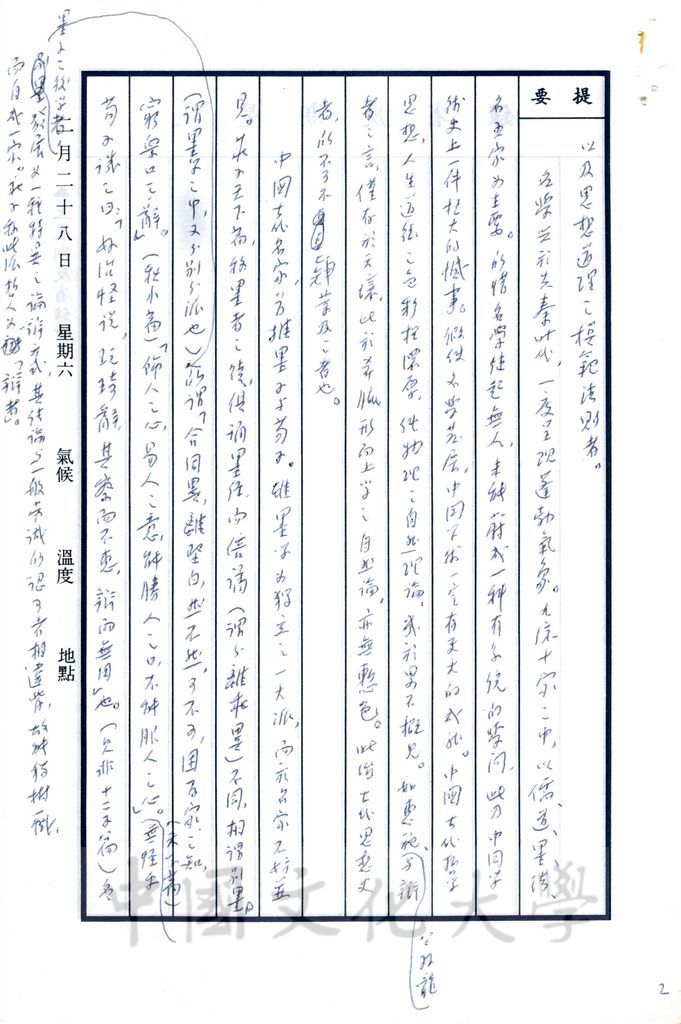 提要
以及思想道理之模範法則者。
名學興於先秦時代,一度呈現蓬勃氣象。九流十家之中,以儒、道、墨、法、
名五家為主要。所惜名學繼起無人,未能蔚成一種有系統的學問,此乃中國學
術史上一件極大的憾事。假使名學發展,中國學術一定有更大的成就。中國古代哲學
思想,人生道德之色彩極濃厚,供物理之自然理論,或於學不概見。如惠施、公孫龍辯
者之言,僅存於天壤,此於希臘形而上學之自然論,亦無愧色。此治古代思想史
者,所不可不 肄業及之者也。
中國古代名家,首推墨子與荀子。雖墨學為獨立之一大派,而於名家不妨並
見。莊子天下篇,稱墨者之後,俱誦墨經,而倍譎(謂分離乖異)不同,相謂別墨。
(謂墨家之中,又分別分派也)所謂「合同異,離堅白,然不然,可不可,困百家之知,
窮眾口之辭」。(秋水篇)「飾人之心,易人之意,能勝人之口,不能服人之心。(天下篇)
荀子譏之曰:「好治怪說,玩琦辭,甚察而不惠,辯而無用」也。(見非十二子篇)
墨子之後學者
發展為一種特異之論辯方式,其結論與一般常識的認可者相違背,故能獨樹一幟,
而自成一家。我于稱此派哲人為「辯者」。
二月二十八日 星期六 氣候 溫度 地點
中國文化大學
2